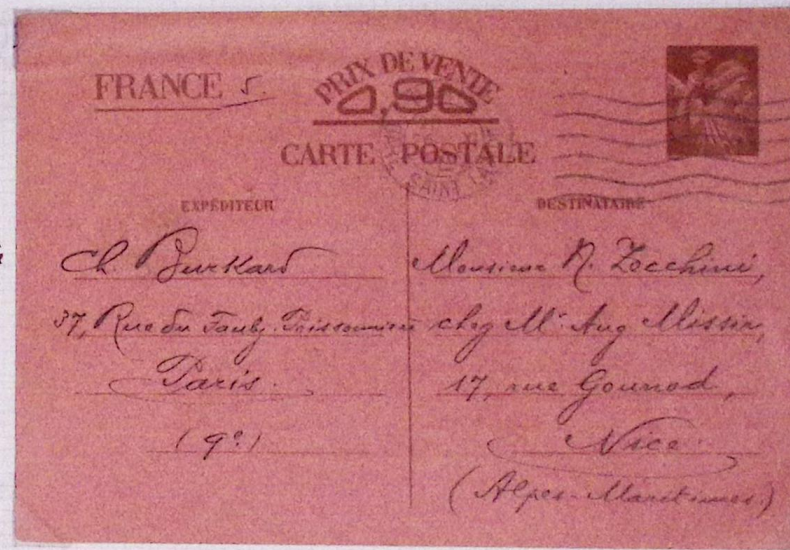 FRANCE 5.
PRIX DE VENTE
0,90
CARTE POSTALE
SAINT LA
EXPÉDITEUR
Ch. Burkard
37, Rue du Faubg. Poissonnière
Paris.
(9e)
DESTINATAIRE
Monsieur N. Zocchini,
chez Mr. Aug Missir,
17, rue Gounod,
Nice
(Alpes-Maritimes.)